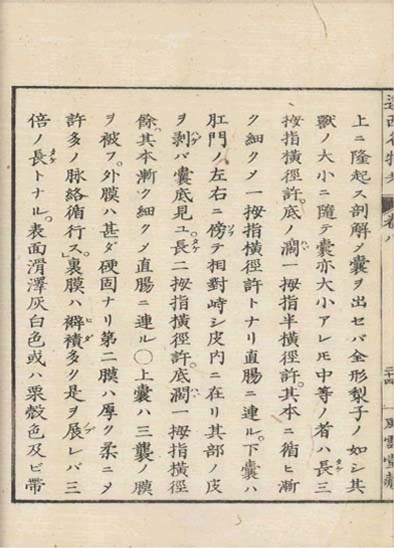 卷八
上ニ隆起ス剖解〆囊ヲ出セバ全形梨子ノ如シ其
獸ノ大小ニ隨テ囊亦大小アレ𪜈中等ノ者ハ長三
拇指橫徑許。底ノ濶一拇指半橫徑許。其本ニ循ヒ漸
ク細ク〆一拇指橫徑許トナリ直腸ニ連ル。下囊ハ
肛門ノ左右ニ傍テ相對峙シ皮內ニ在リ其部ノ皮
ヲ剥バ囊底見ユ。長二拇指橫徑許。底濶一拇指橫徑
餘。其本漸ク細ク〆直腸ニ連ル〇上囊ハ三襲ノ膜
ヲ被フ。外膜ハ甚ダ硬固ナリ第二膜ハ厚ク柔ニ〆
許多ノ脉絡循行ス。裏膜ハ襞積多ク是ヲ展レバ三
倍ノ長トナル。表面滑澤灰白色或ハ栗殼色及ビ帶